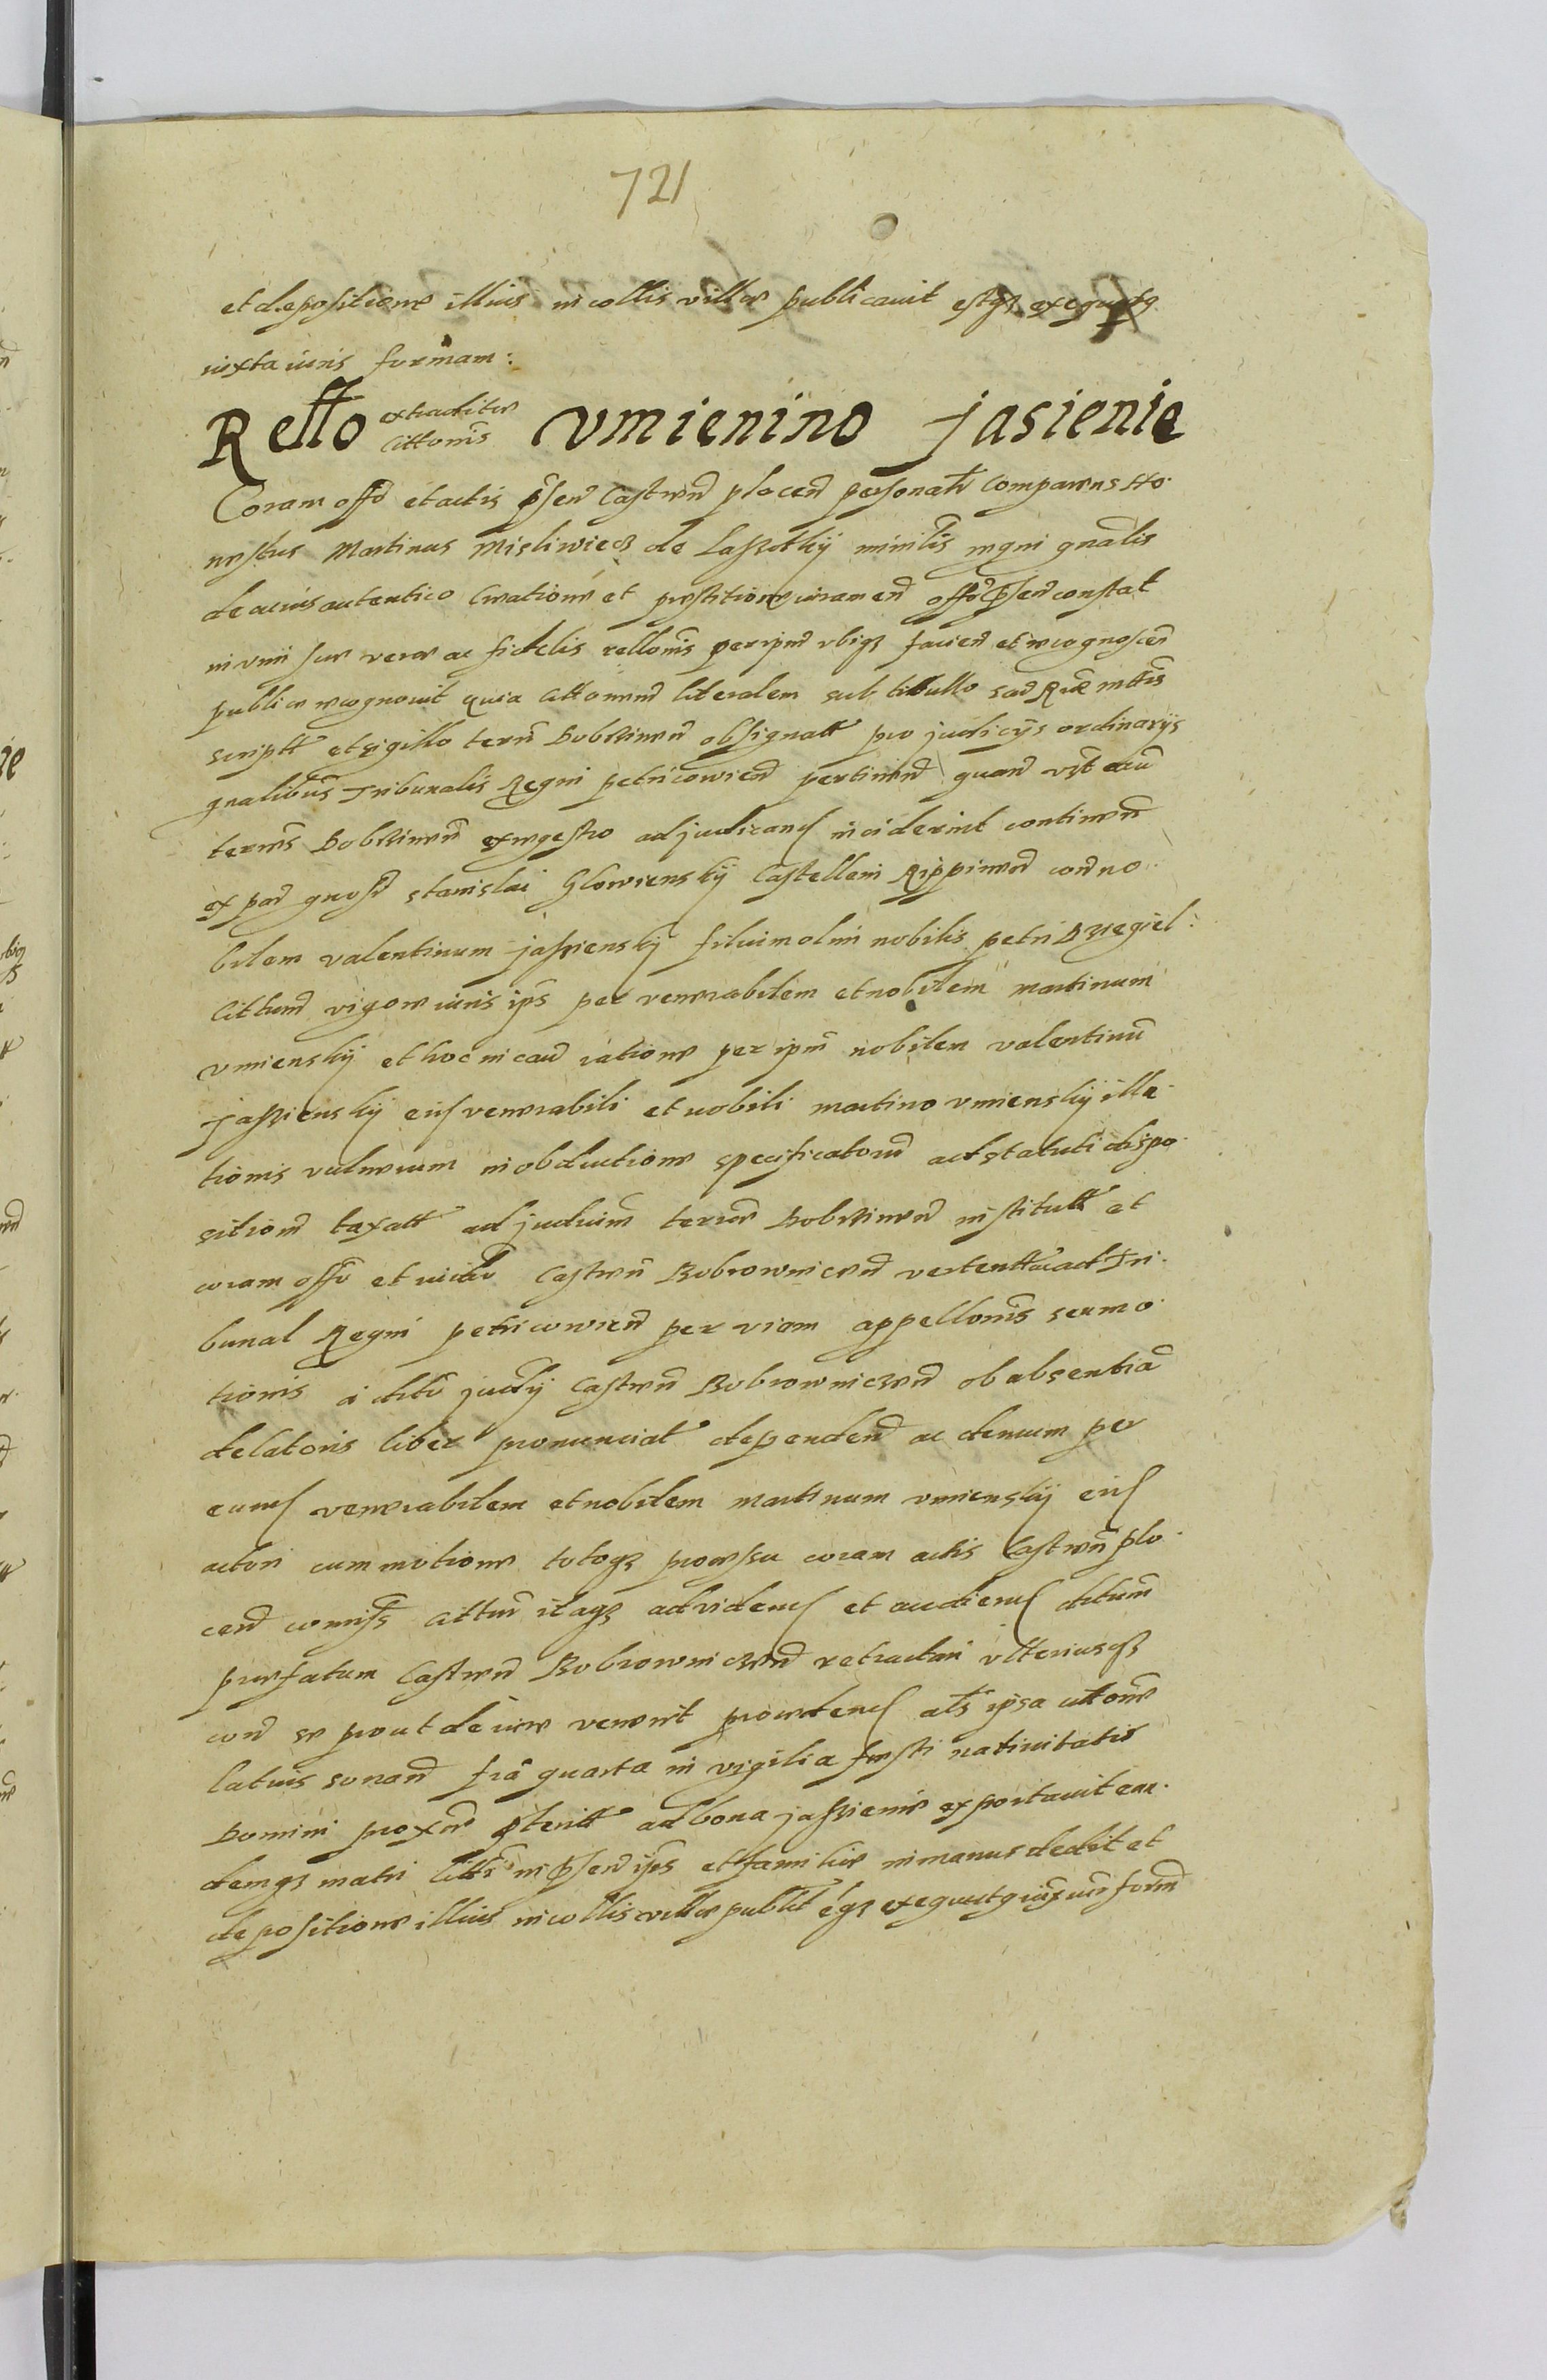 721
et depositione illius in collis villae publicavit estqz
iuxta iuris formam:
Rello extraditae Cittonis Umienino Jasienie
Coram offo et actis psen Castren plocen personalr comparens Ho-
nestus Martinus Misliwiecz de Lassotky minilis regni gnalis
de cuius autentico creatione et prestitione iuramen offo psen constat
in vim suae verae ac fidelis rellonis per ipm ubiqz facien et recognoscen
publice recognovit quia Cittonem literalem sub titullo Sac Rae mttis
scriptt et sigillo terrs Dobrinen obsignatt pro judicys ordinarys
gnalibus Tribunalis Regni petricowien pertinen quan
terrs Dobrinen ex regestro ad judicand inciderint continen
ex par gnosi stanislai Glowiensky Castellani Rippinen con no-
bilem valentinum jassiensky filium olim nobilis petri
Cittum vigore iuris ips per venerabilem et nobilem martinum
umiensky et hoc in cau ratione per ipm nobilem valentinu
Jassiensky eid venerabili et nobili martino umiensky illa-
tionis vulnerum in obductione specificatorum ad statuti dispo-
sitionem taxatt ad judicium terrae Dobrinen institutt et
coram offo et iudio Castren Bobrownicen vertentt ac ad Tri-
bunal Regni petricowien per viam appellonis seu mo-
tionis a dito judicy Castren Bobrowniczen ob absentia
delatoris liber pronunciat dependen ac demum per
eund venerabilem et nobilem martinum umiensky eid
actori cum motione totoqz processu coram actis Castren plo-
cen comiss Cittur itaqz ad vidend et audiend ditum
praefatum Castren Bobrowniczen retractari ulteriusqz
con se prout de iure venerit procedend als ipsa Cittone
latius sonan fria quarta in vigilia festi nativitatis
Domini proxime pteritt ad bona jassienie exportavit ean-
demqz matri Citti in psen ips et familiae in manus dedit et
depositione illius in collis villae publit eqz juxta iuris form